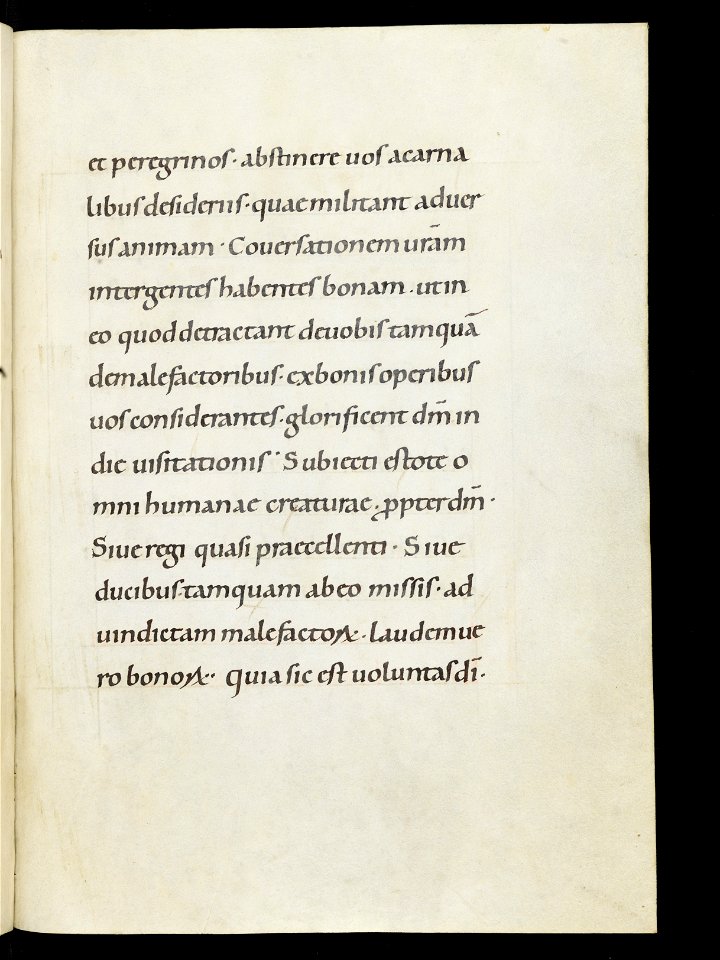 et peregrinos· abstinere uos acarna
libus desideriis· quae militant aduer
sus animam· Couersationem urãm
inter gentes habentes bonam· ut in
eo quod detractant de uobis tamquã
de malefactoribus· ex bonis operibus
uos considerantes· glorificent dm̅ in
die uisitationis· Subiecti estote o
mni humanae creaturae· ꝓpter dm̅·
Siue regi quasi praecellenti· Siue
ducibus· tamquam ab eo missis· ad
uindictam malefactoꝝ· Laudem ue
ro bonoꝝ· quia sic est uoluntas di̅·